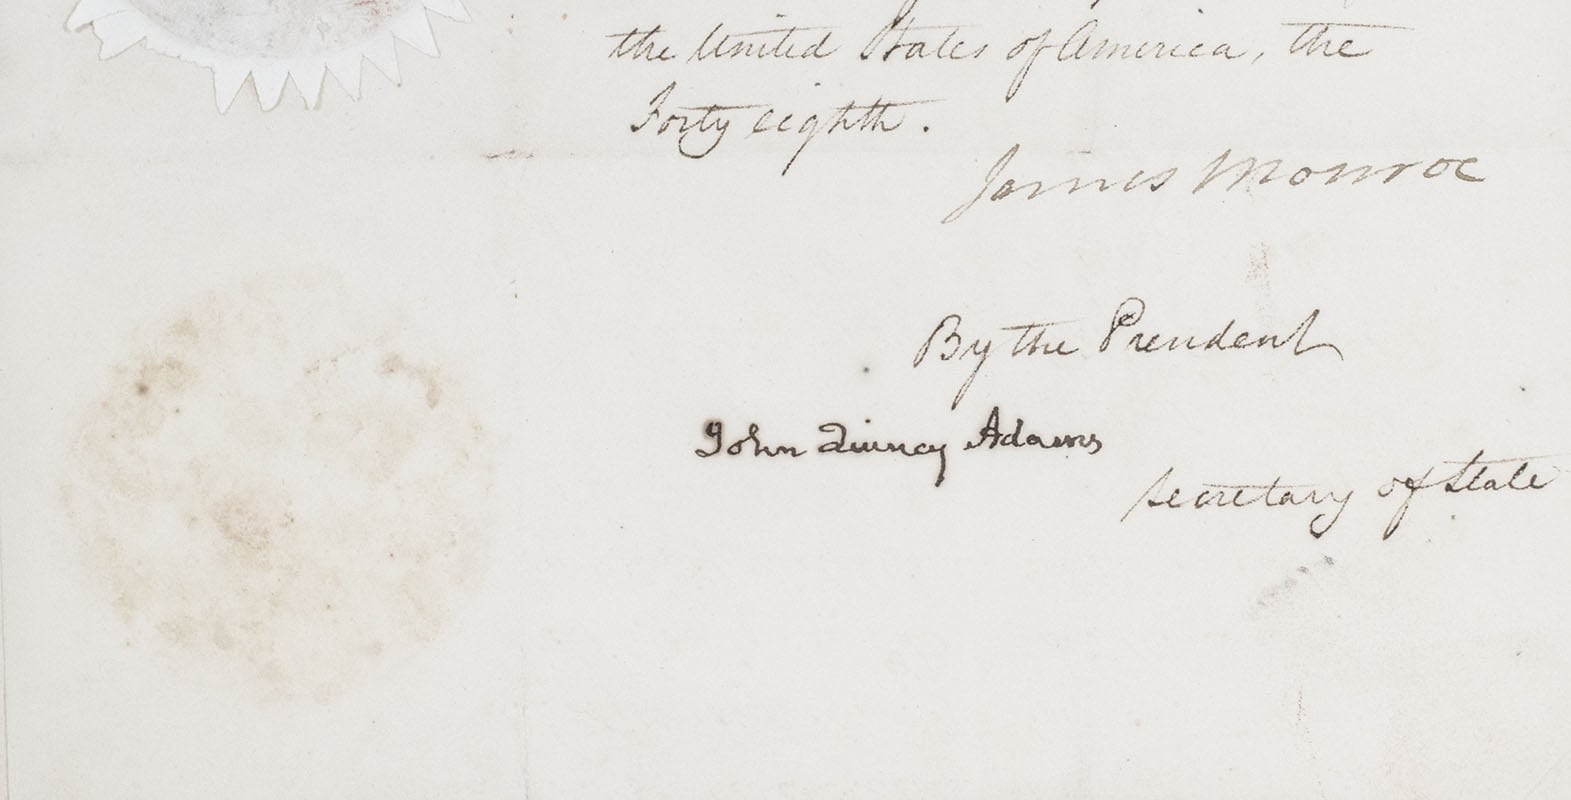 the United States of America, the
Forty eighth.
James Monroe
By the President
John Quincy Adams
Secretary of State